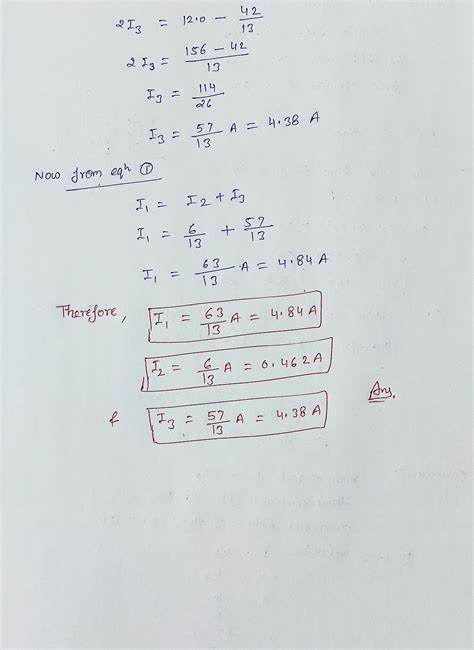 2I₃ = 12.0 − 42/13
2I₃ = 156 − 42/13
I₃ = 114/26
I₃ = 57/13 A = 4.38 A
Now from eqn ①
I₁ = I₂ + I₃
I₁ = 6/13 + 57/13
I₁ = 63/13 A = 4.84 A
Therefore, I₁ = 63/13 A = 4.84 A
I₂ = 6/13 A = 0.462 A
& I₃ = 57/13 A = 4.38 A Ans.